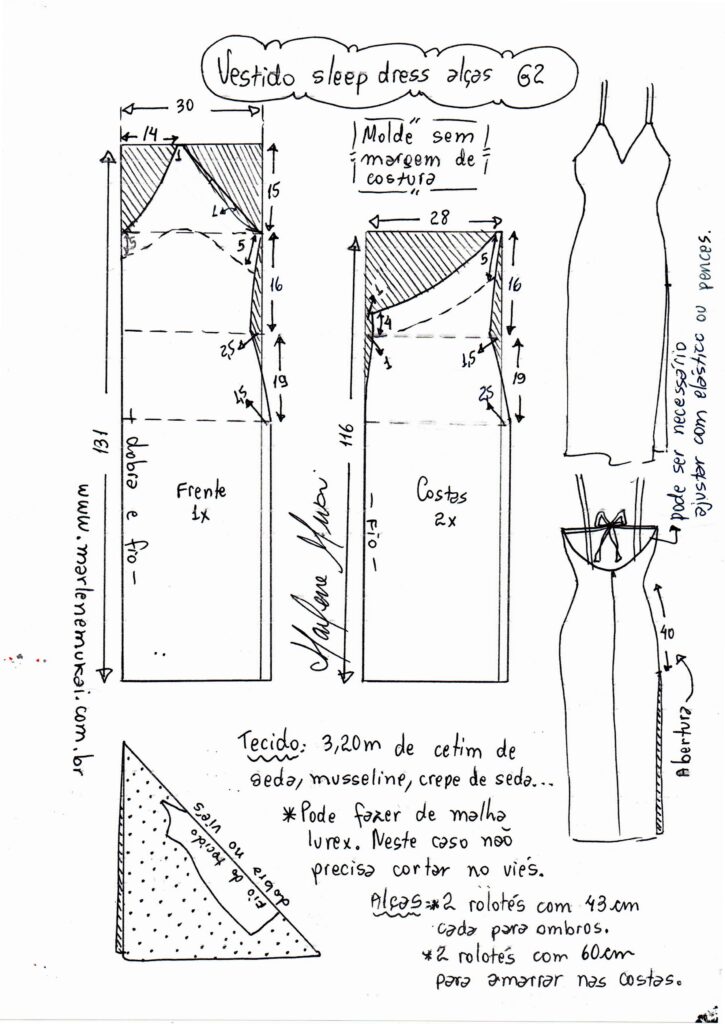 Vestido sleep dress alças G2
30
14
1
15
7
5
5
16
2,5
19
1,5
131
dobra e fio
Frente
1x
www.marlenemukai.com.br
Molde sem
margem de
costura
28
5
16
1
4
1
1,5
19
2,5
116
Costas
2x
Fio
Marlene Mukai
pode ser necessário
ajustar com elástico ou pences.
40
Abertura
Tecido: 3,20m de cetim de
seda, musseline, crepe de seda...
*Pode fazer de malha
lurex. Neste caso não
precisa cortar no viés.
Alças:*2 rolotés com 43cm
cada para ombros.
*2 rolotés com 60cm
para amarrar nas costas.
dobra no viés
fio do tecido